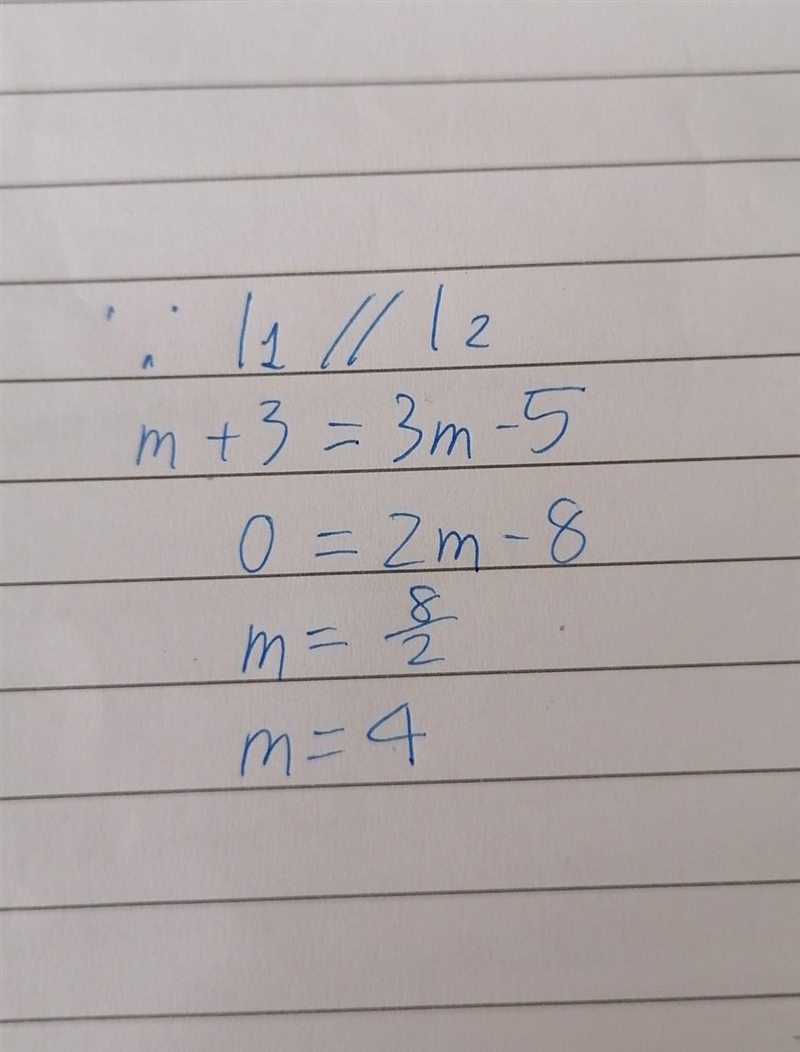 ∵ l1 // l2
m + 3 = 3m - 5
0 = 2m - 8
m = 8/2
m = 4